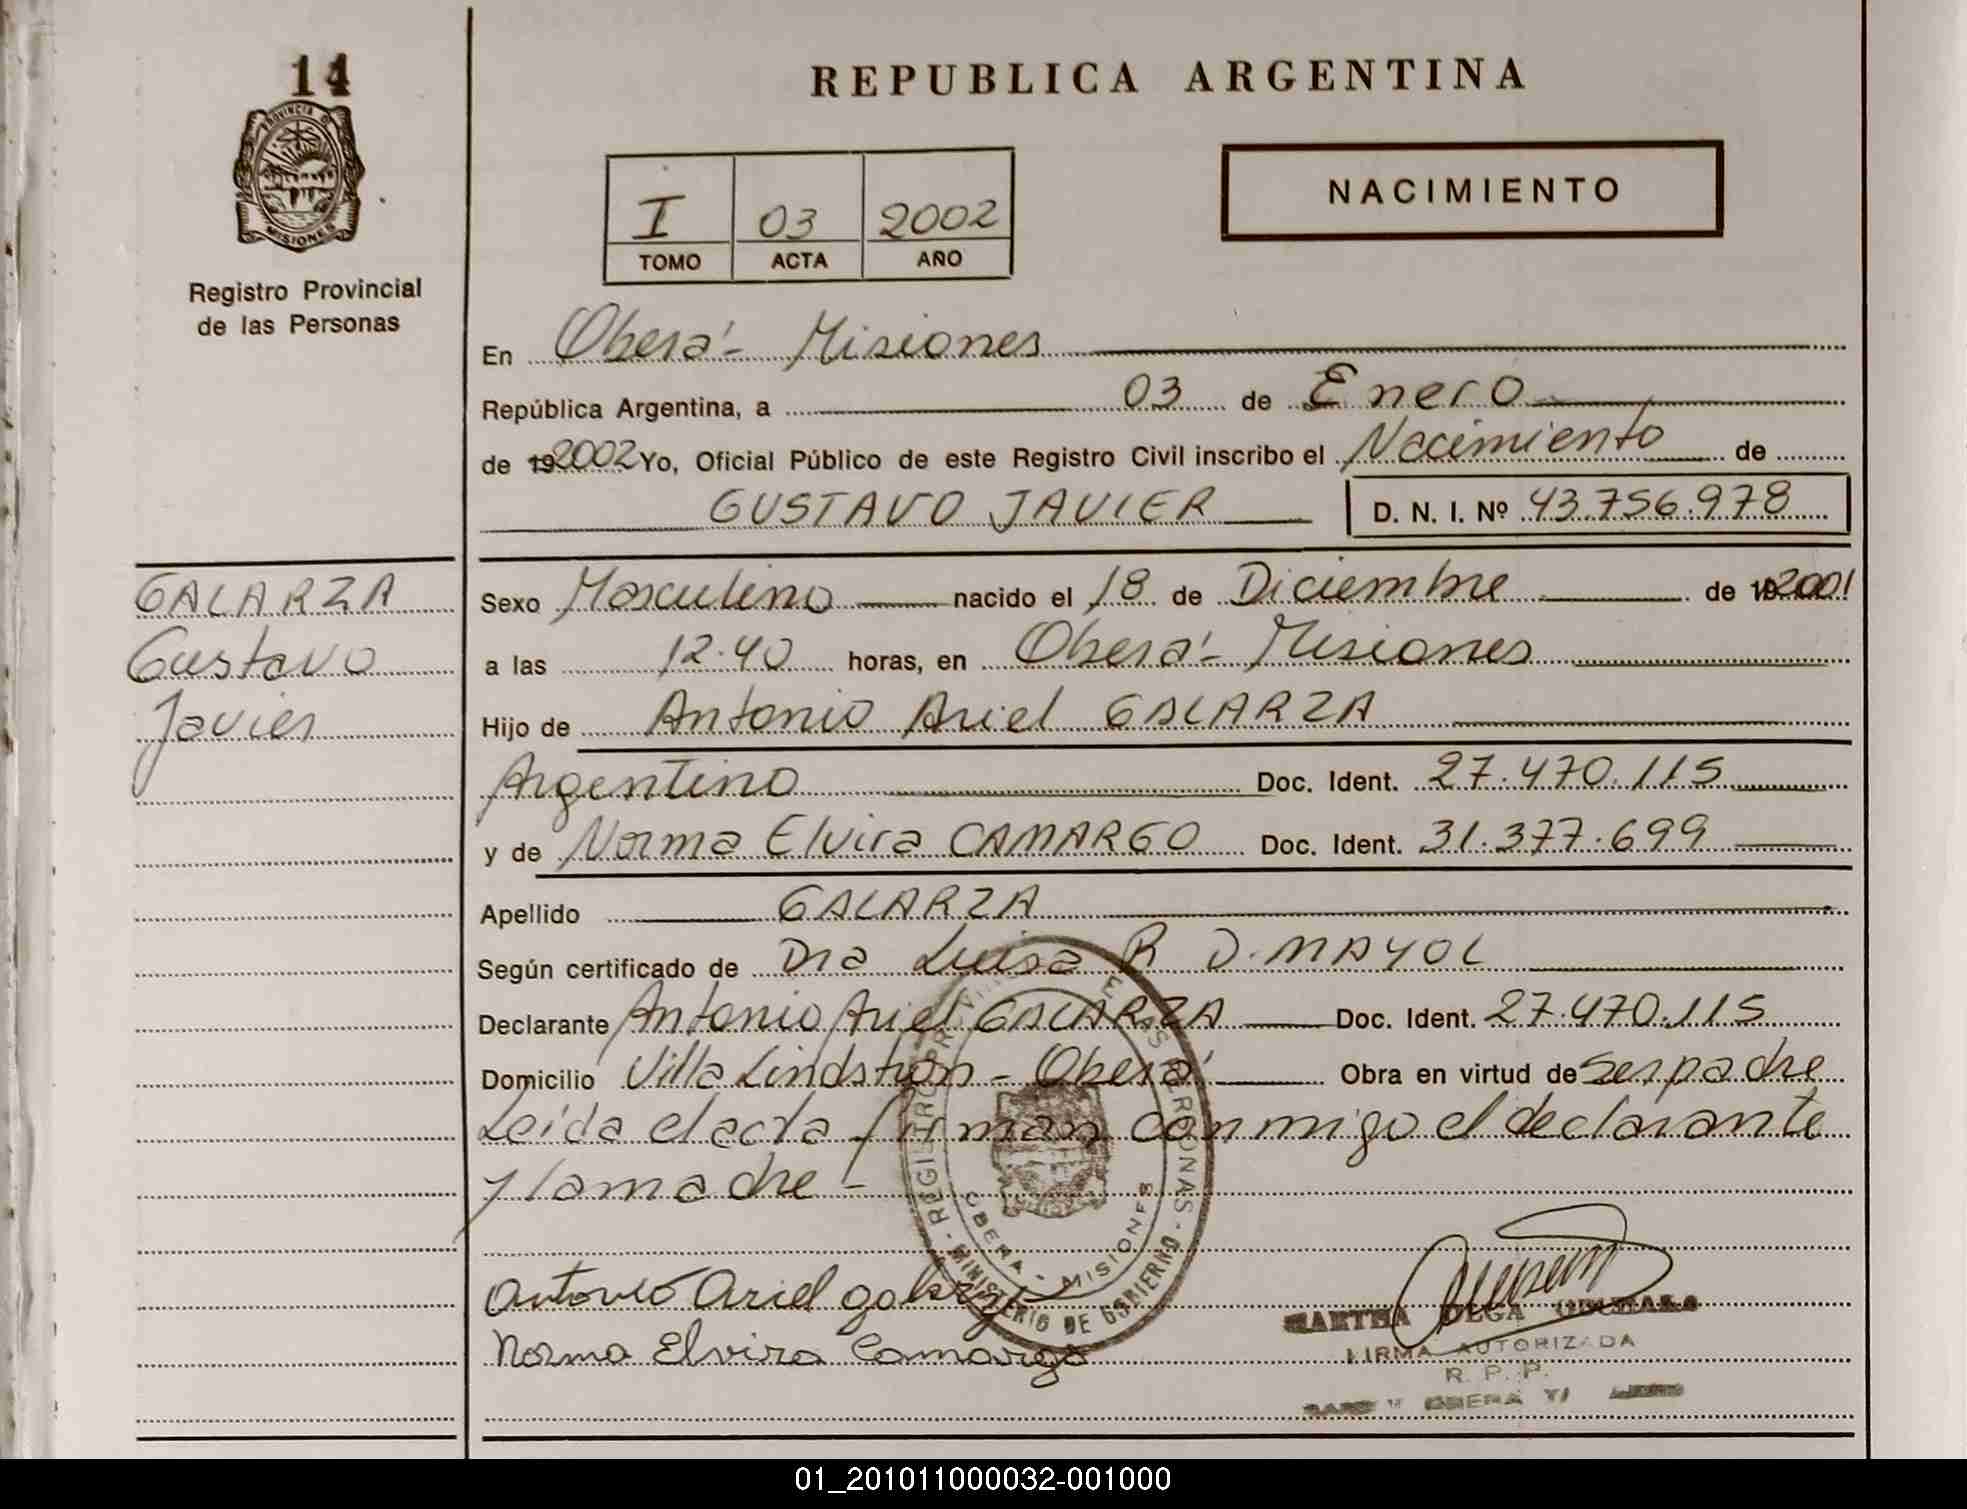 14
PROVINCIA DE
MISIONES
Registro Provincial
de las Personas
REPUBLICA ARGENTINA
I 03 2002
TOMO ACTA AÑO
NACIMIENTO
En Oberá - Misiones
República Argentina, a 03 de Enero
de 192002 Yo, Oficial Público de este Registro Civil inscribo el Nacimiento de
GUSTAVO JAVIER D. N. I. Nº 43.756.978
GALARZA
Gustavo
Javier
Sexo Masculino nacido el 18 de Diciembre de 192001
a las 12.40 horas, en Oberá - Misiones
Hijo de Antonio Ariel GALARZA
Argentino Doc. Ident. 27.470.115
y de Norma Elvira CAMARGO Doc. Ident. 31.377.699
Apellido GALARZA
Según certificado de Dra Luisa R D. MAYOL
Declarante Antonio Ariel GALARZA Doc. Ident. 27.470.115
Domicilio Villa Lindstron - Oberá Obra en virtud de ser padre
Leída el acta firman conmigo el declarante
y la madre -
OBERA - MISIONES
MINISTERIO DE GOBIERNO
Antonio Ariel galarza
Norma Elvira Camargo
MARTHA OLGA
FIRMA AUTORIZADA
R. P. P.
OBERA
01_201011000032-001000